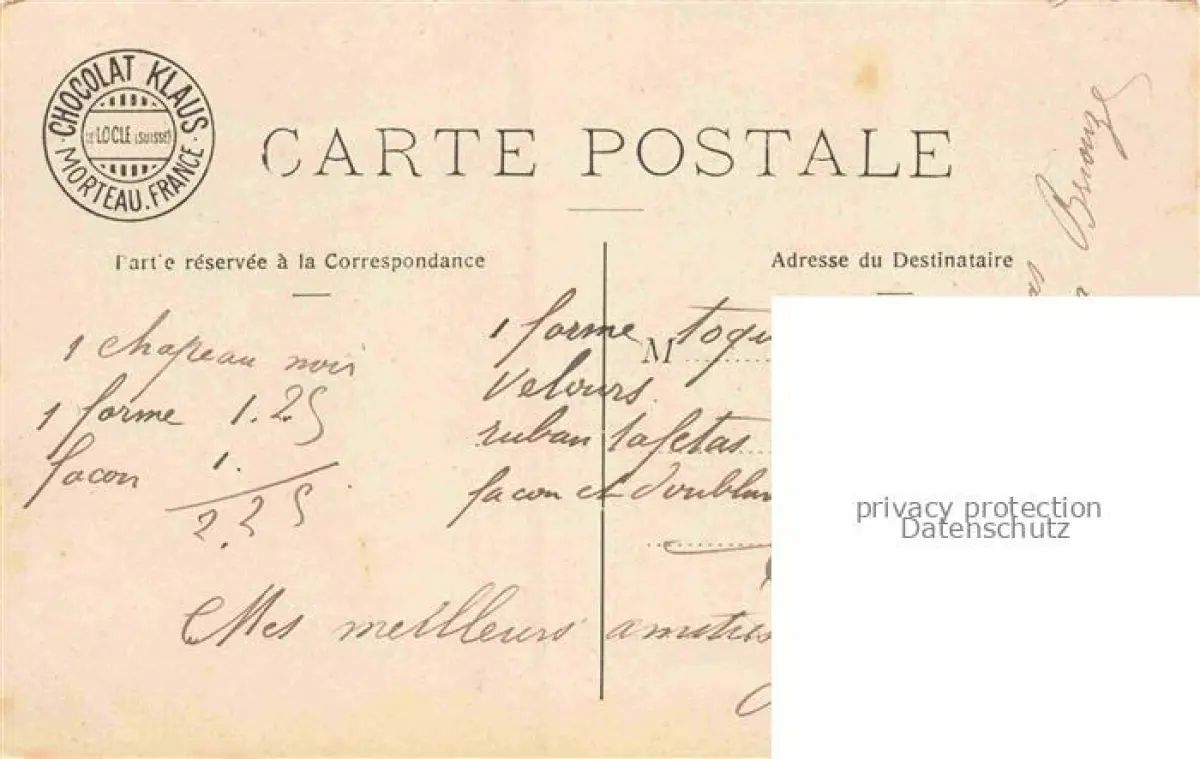 CHOCOLAT KLAUS
LE LOCLE (SUISSE)
MORTEAU. FRANCE
CARTE POSTALE
Partie réservée à la Correspondance
Adresse du Destinataire
1 chapeau noir
1 forme 1.25
façon 1.
2.25
1 forme toqu
M
velours
ruban tafetas
façon et doublu
Mes meilleurs amitiés
Briouze
privacy protection
Datenschutz